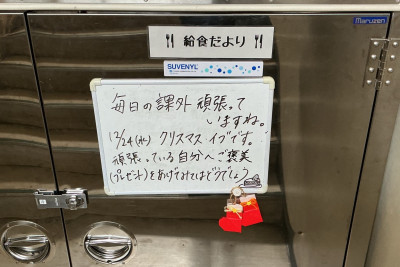 Maruzen
給食だより
SUVENYL
毎日の課外 頑張って
いますね。
12/24(水) クリスマス・イブです。
頑張っている自分へご褒美
(プレゼント)をあげてみてはどうでしょう